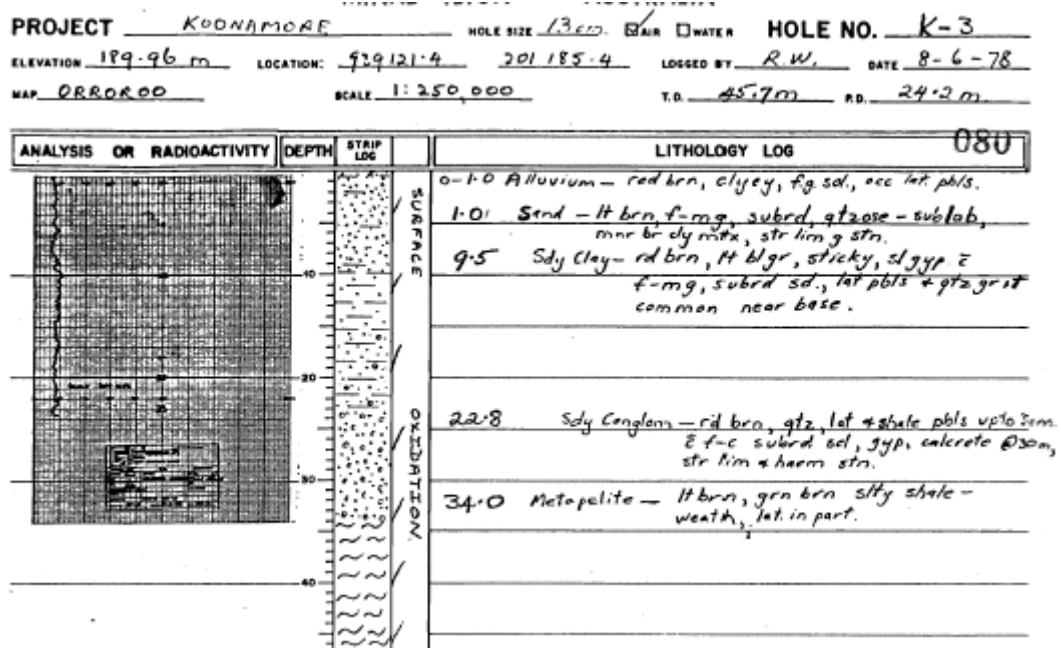 PROJECT KOONAMORE HOLE SIZE 13cm. ☑AIR ☐WATER HOLE NO. K-3
ELEVATION 189.96 m LOCATION: 201 185.4 LOGGED BY R.W. DATE 8-6-78
MAP ORROROO SCALE 1:250,000 T.D. 45.7m P.D. 24.2 m
080
ANALYSIS OR RADIOACTIVITY DEPTH STRIP LOG LITHOLOGY LOG
SURFACE OXIDATION
0-1.0 Alluvium — red brn, clyey, fg sd., occ lat. pbls.
1.0 Sand — lt brn, f-mg, subrd, qtzose - sublab,
mnr br cly mtx, str lim g stn.
9.5 Sdy Clay — rd brn, lt bl gr, sticky, sl gyp. c̄
f-mg, subrd sd., lat pbls + qtz grit
common near base.
22.8 Sdy Conglom — rd brn, qtz, lat & shale pbls upto
c̄ f-c subrd sd, gyp, calcrete @30m,
str lim & haem stn.
34.0 Metapelite — lt brn, grn brn slty shale -
weath, lat. in part.
10
20
30
40